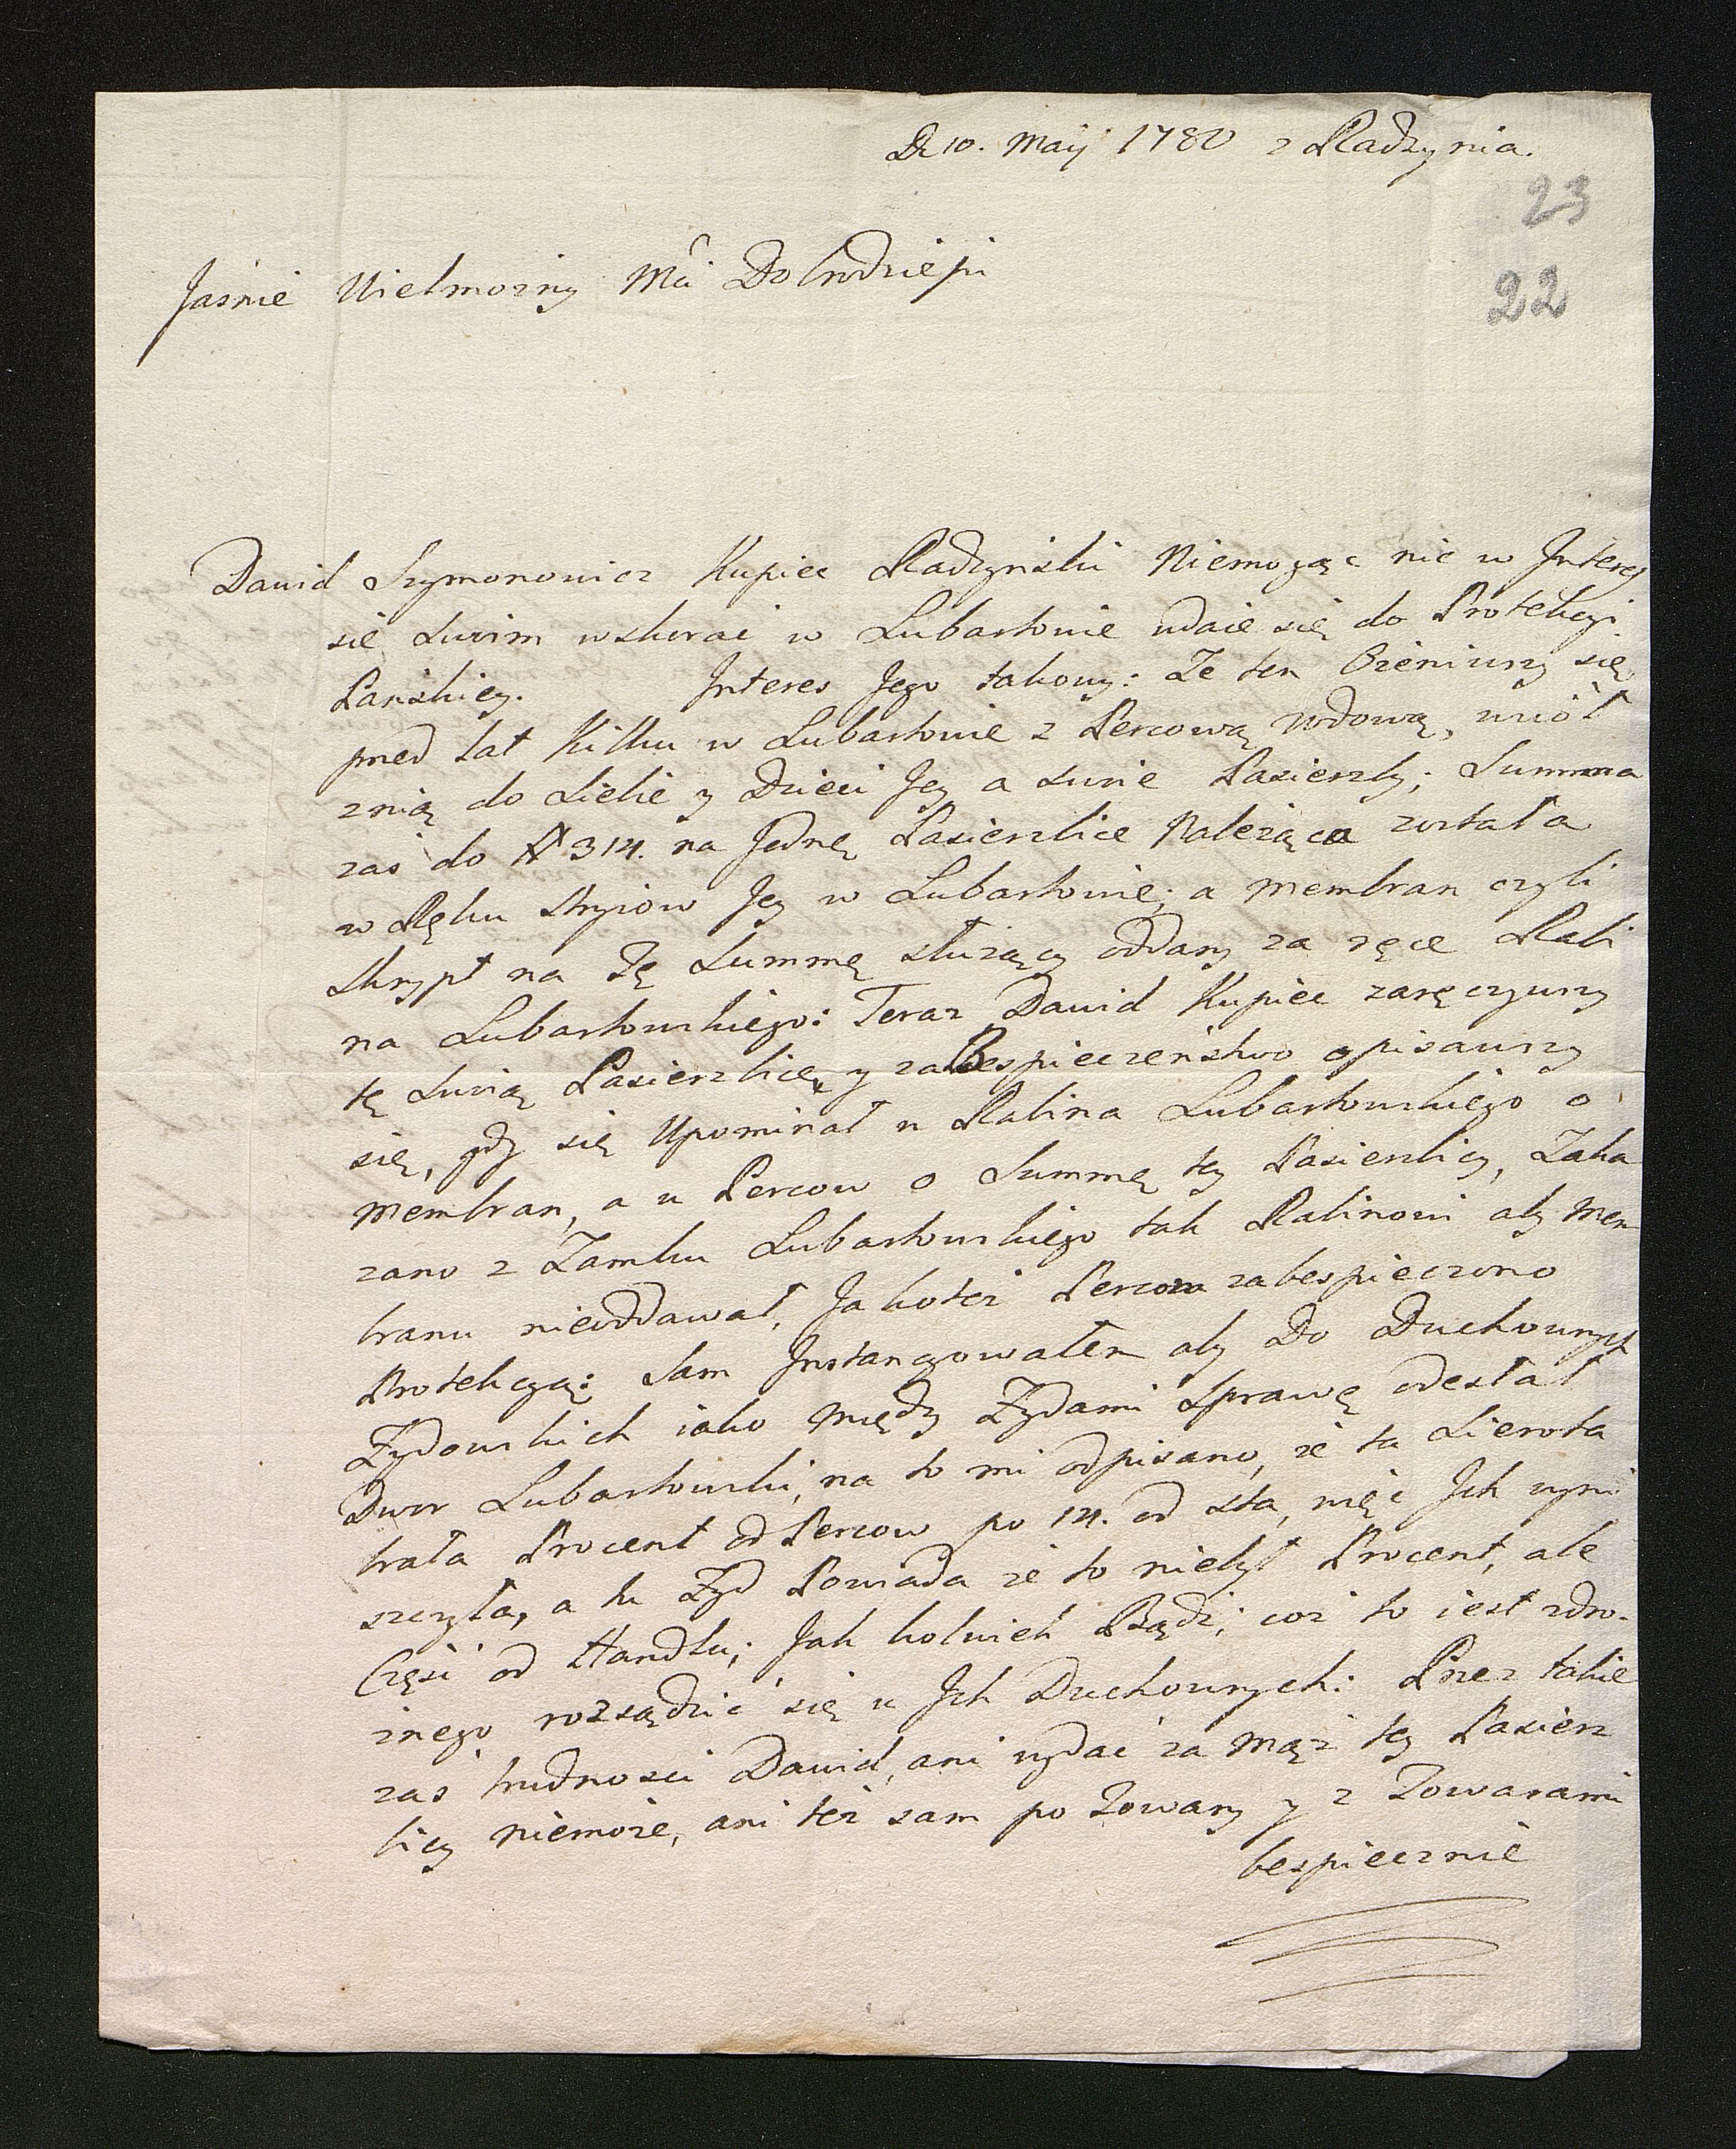 D 10. Maij 1780 z Radzynia.
23
22
Jaśnie Wielmozny Mći Dobrodzieju
Dawid Szymonowicz Kupiec Radzynski Niemogąc nic w Interes
sie Swoim wskurac w Lubartowie udaie się do Protekcyi
Panskiey. Interes Jego takowy: Ze ten Ozeniwszy się
przed lat Kilku w Lubartowie z Percową wdową, wziół
znią do Siebie y Dzieci Jey a Swoie Pasierzby; Summa
zas do # 314. na Jednę Pasierzbice Naleząca została
w Ręku Stryiow Jey w Lubartowie; a membran czyli
Skrypt na Tę Summę słuząacy oddany za ręce Rabi
na Lubartowskiego: Teraz Dawid Kupiec zaręczywszy
tę Swoią Pasierzbicę y zabespieczeństwo opisawszy
się, gdy się Upominał u Rabina Lubartowskiego o
membran, a u Percow o Summę tey Pasierbicy, Zaka
zano z Zamku Lubartowskiego tak Rabinowi aby Mem
branu nieoddawał, Jakotez Percom zabespieczono
Protekcyą: Sam Instancyowałem aby Do Duchownych
Zydowskich iako między Zydami Sprawę odesłał
Dwor Lubartowski, na to mi odpisano, ze ta Sierota
brała Procent od Percow po 14. od sta, więc Jch zyni
szczyła, a tu Zyd Powiada ze to niebył Procent, ale
Część od Handlu; Jak kolwiek Bądz; coz to iest zdro-
znego rozsądzić się u Jch Duchownych: Przez takie
zas trudnosci Dawid, ani wydać za mąz tey Pasierz
bicy niemoze, ani tez sam po Towary y z Towarami
bespiecznie